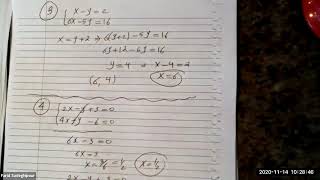 ③ { x - y = 2
6x - 5y = 16
x = y + 2 ⇒ 6(y+2) - 5y = 16
6y + 12 - 5y = 16
y = 4 ⇒ x - 4 = 2
(6, 4) x = 6
④ { 2x - y + 3 = 0
4x + y - 6 = 0
6x - 3 = 0
6x = 3
x = 3/6 = 1/2 x = 1/2
2x - y + 3 = 0
Farid Sadeghipour
2020-11-14 10:28:46